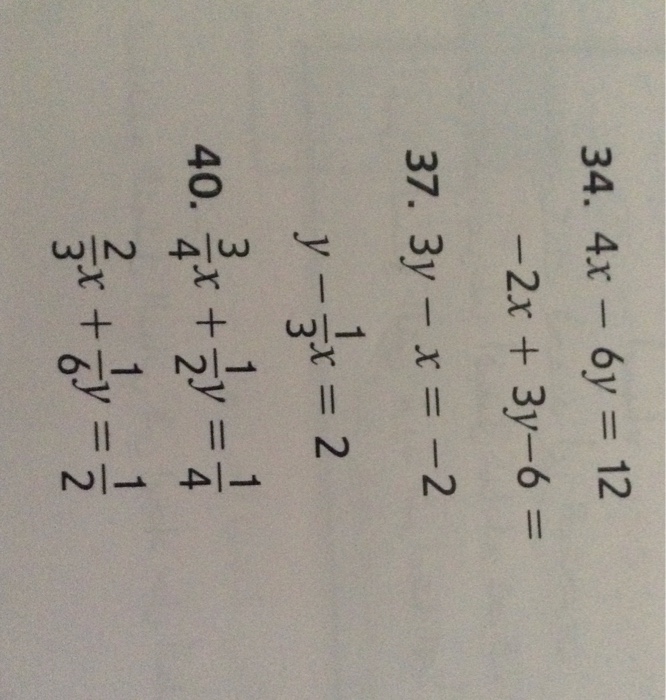 34. 4x − 6y = 12
−2x + 3y−6 =
37. 3y − x = −2
y − 1/3x = 2
40. 3/4x + 1/2y = 1/4
2/3x + 1/6y = 1/2